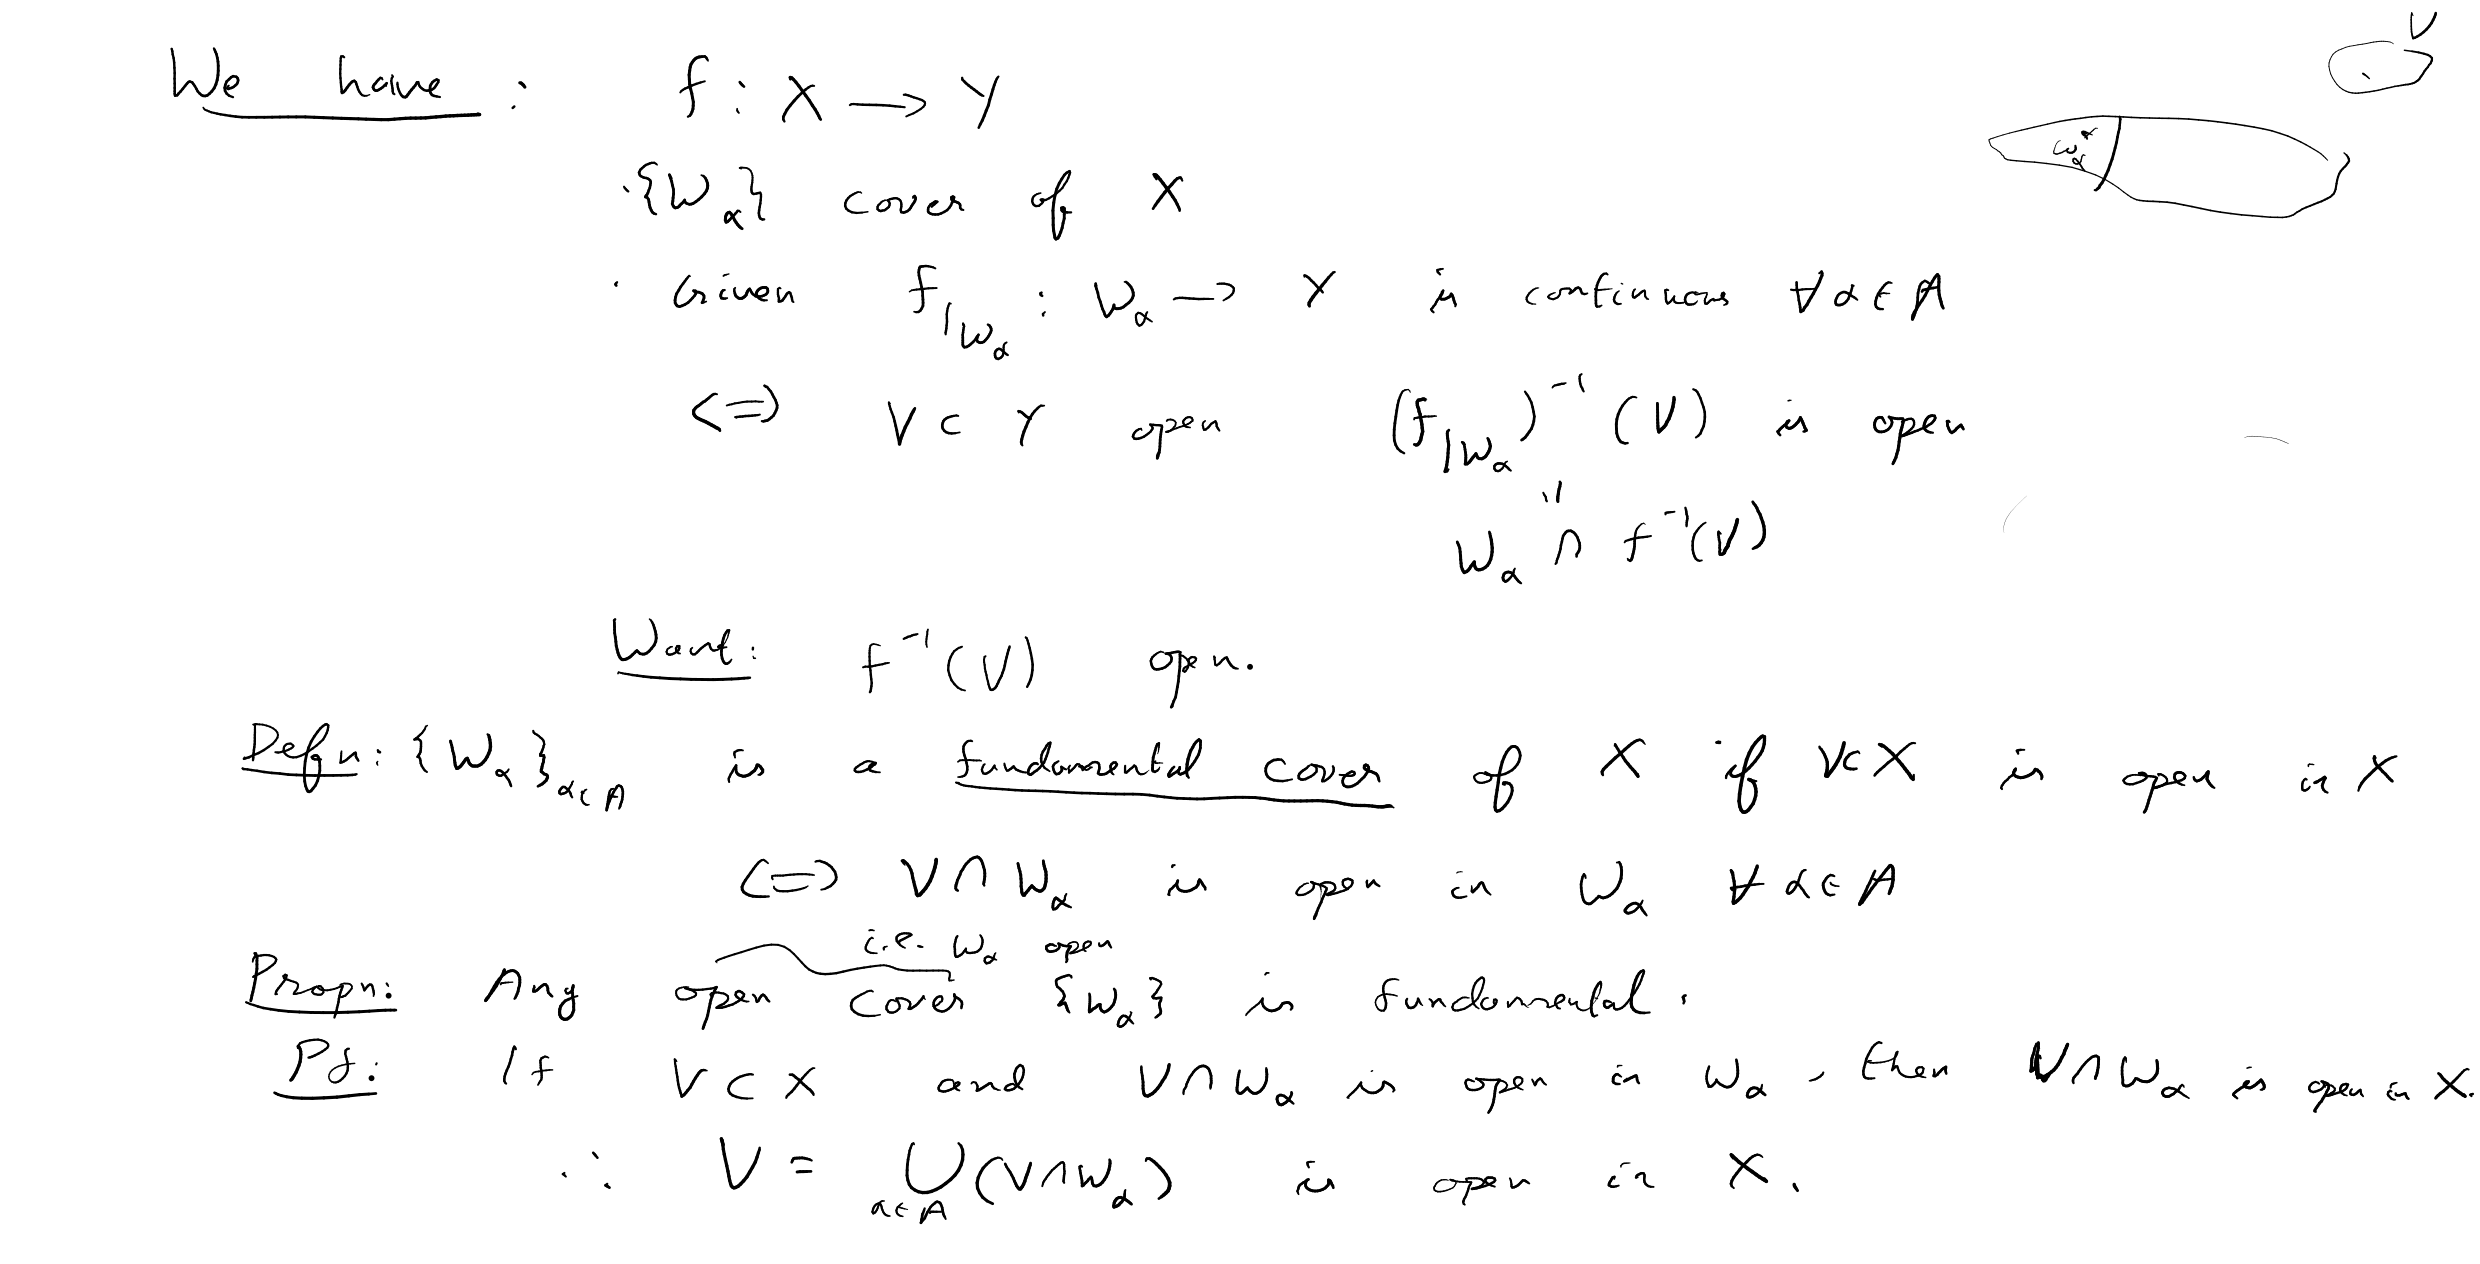 V
We have : f : X → Y
W_α
· {W_α} cover of X
· Given f|_{W_α} : W_α → Y is continuous ∀ α ∈ A
<=> V ⊂ Y open (f|_{W_α})^{-1} (V) is open
"
W_α ∩ f^{-1}(V)
Want: f^{-1}(V) open.
Defn: {W_α}_{α∈A} is a fundamental cover of X if V⊂X is open in X
<=> V ∩ W_α is open in W_α ∀ α ∈ A
i.e. W_α open
Propn: Any open cover {W_α} is fundamental.
Pf: If V ⊂ X and V ∩ W_α is open in W_α, then V ∩ W_α is open in X.
∴ V = ⋃_{α∈A} (V∩W_α) is open in X.